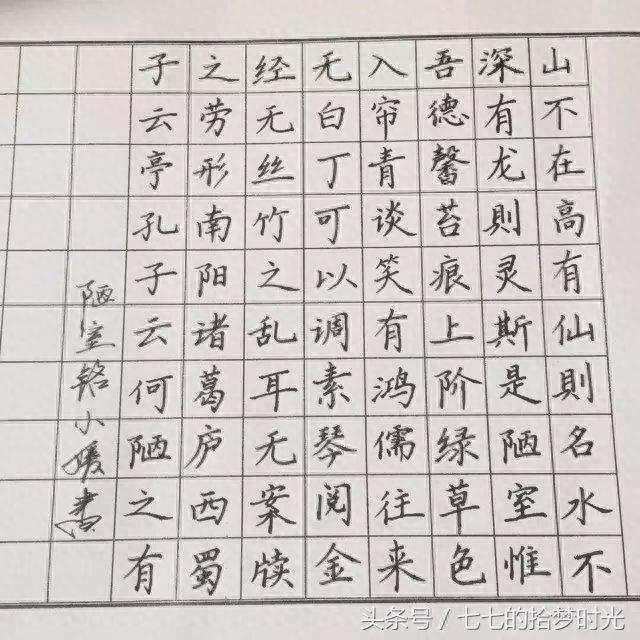 山不在高有仙則名水不
深有龙則灵斯是陋室惟
吾德馨苔痕上阶绿草色
入帘青谈笑有鸿儒往来
无白丁可以调素琴阅金
经无丝竹之乱耳无案牍
之劳形南阳诸葛庐西蜀
子云亭孔子云何陋之有
陋室铭小媛书
头条号 / 七七的拾梦时光